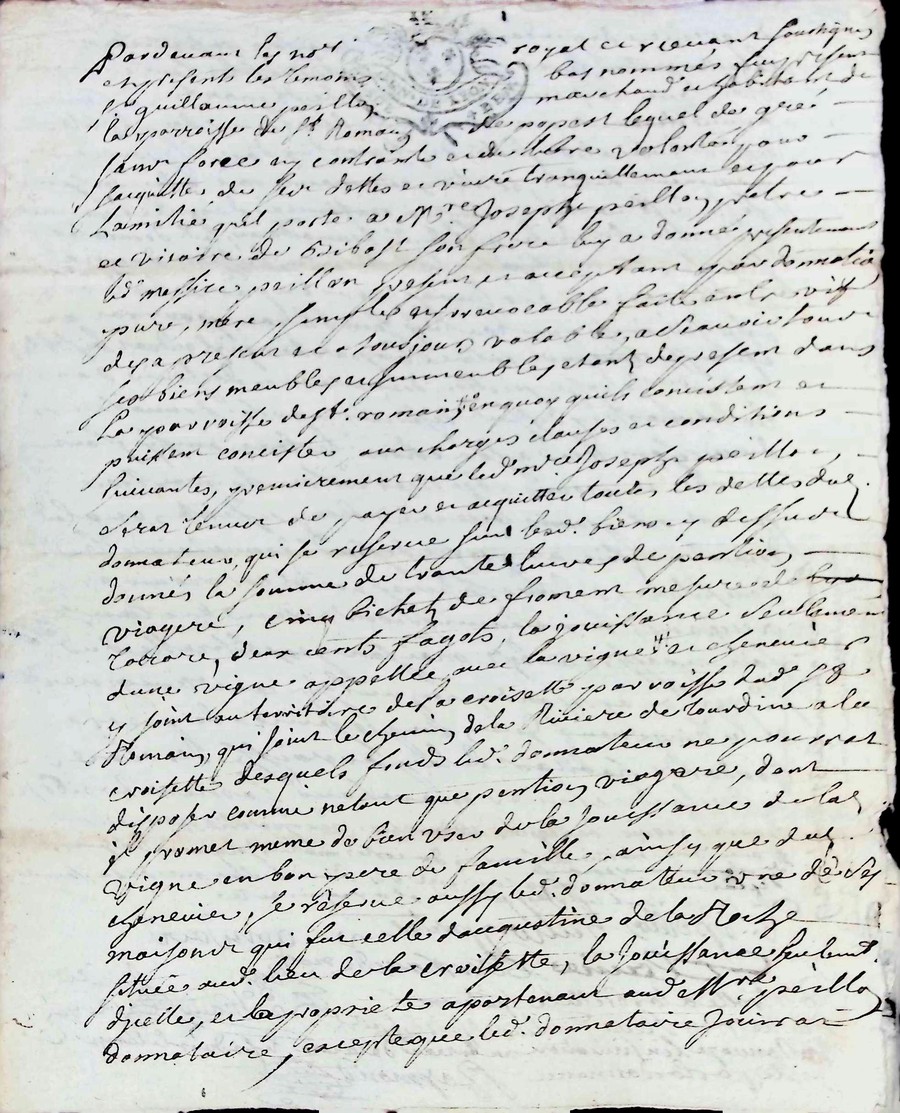 Pardevant les no.res royal cy recevant soussignes
et presents les temoins bas nommés fut present
Sr. guillaume peillon marchand et habitant de
la parroisse de St. Romain de popest lequel de gré
sans force ny contrainte et de libre volonté pour
sacquitter de ses dettes et vivre tranquillement et pour
Lamitié quil porte a Mre. Joseph peillon pretre
et vicaire de Ribost son frere luy a donné presentement
led. messire peillon present et acceptant par donnation
pure, mere simple et irrevocable faite entre vifs
des a present et a toujours valable, a scavoir tous
ses biens meubles et immeubles etant de present dans
La parroisse de St. romain en quoy quils concistent et
puissent concister aux charges clauses et conditions
suivantes, premierement que led. mre. Joseph peillon,
serat tenu de payer et acquitter toutes les dettes dud.
donnateur, qui se reserve sur lesd. biens cy dessus
donnés la somme de trante livres de pention
viagere, cinq bichets de froment mesure de
Tarare, deux cents fagots, la jouissance seulement
dune vigne appellée avec la vigne et chenevier
y joint au territoire de la croisette parroisse dud. St.
Romain, qui joint le chemin de la Riviere de tourdine a la
croisette desquels fonds led. donnateur ne pourrat
disposer comme netant que pention viagere, dont
il promet meme de bien user de la jouissance de lad.
vigne en bon pere de famille, ainsy que dud.
chenevier, se réserve aussy led. donnateur une de ses
maisons qui fut celle d'augustine de la Roche
située aud. lieu de la croisette, la jouissance seulemt.
dicelle, et la proprieté apartenant aud. Mre. peillon
donnataire, excepté que led. donnataire jouirrat